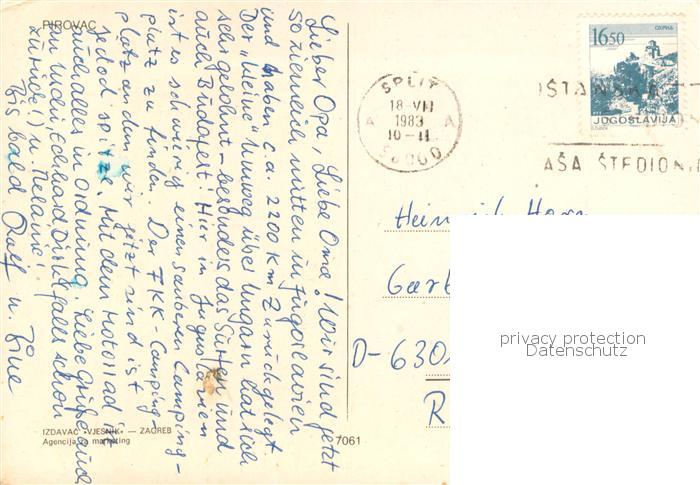 PIROVAC
Lieber Opa, Liebe Oma! Wir sind jetzt
so ziemlich mitten in Jugoslavien
und haben c.a. 2200 km Zurückgelegt
Der "kleine" Umweg über Ungarn hat sich
sehr gelohnt - besonders das Surfen und
auch Budapest! Hier in Jugoslavien
ist es schwierig einen sauberen Camping-
platz zu finden. Der FKK-Camping-
platz an dem wir jetzt sind ist
jedoch spitze. Mit dem Motorrad ist
auch alles in Ordnung. Liebe Grüße auch
an Mani, Eckhard, Dirk (falls schon
zurück!) u. Melanie!
Bis bald Ralf u. Bine
IZDAVAČ »VJESNIK« — ZAGREB
Agencija za marketing
7061
SPLIT
18-VII
1983
10-11
A A
16.50
JUGOSLAVIJA
AŠA ŠTEDION
Heinrich
D-630
R
privacy protection
Datenschutz